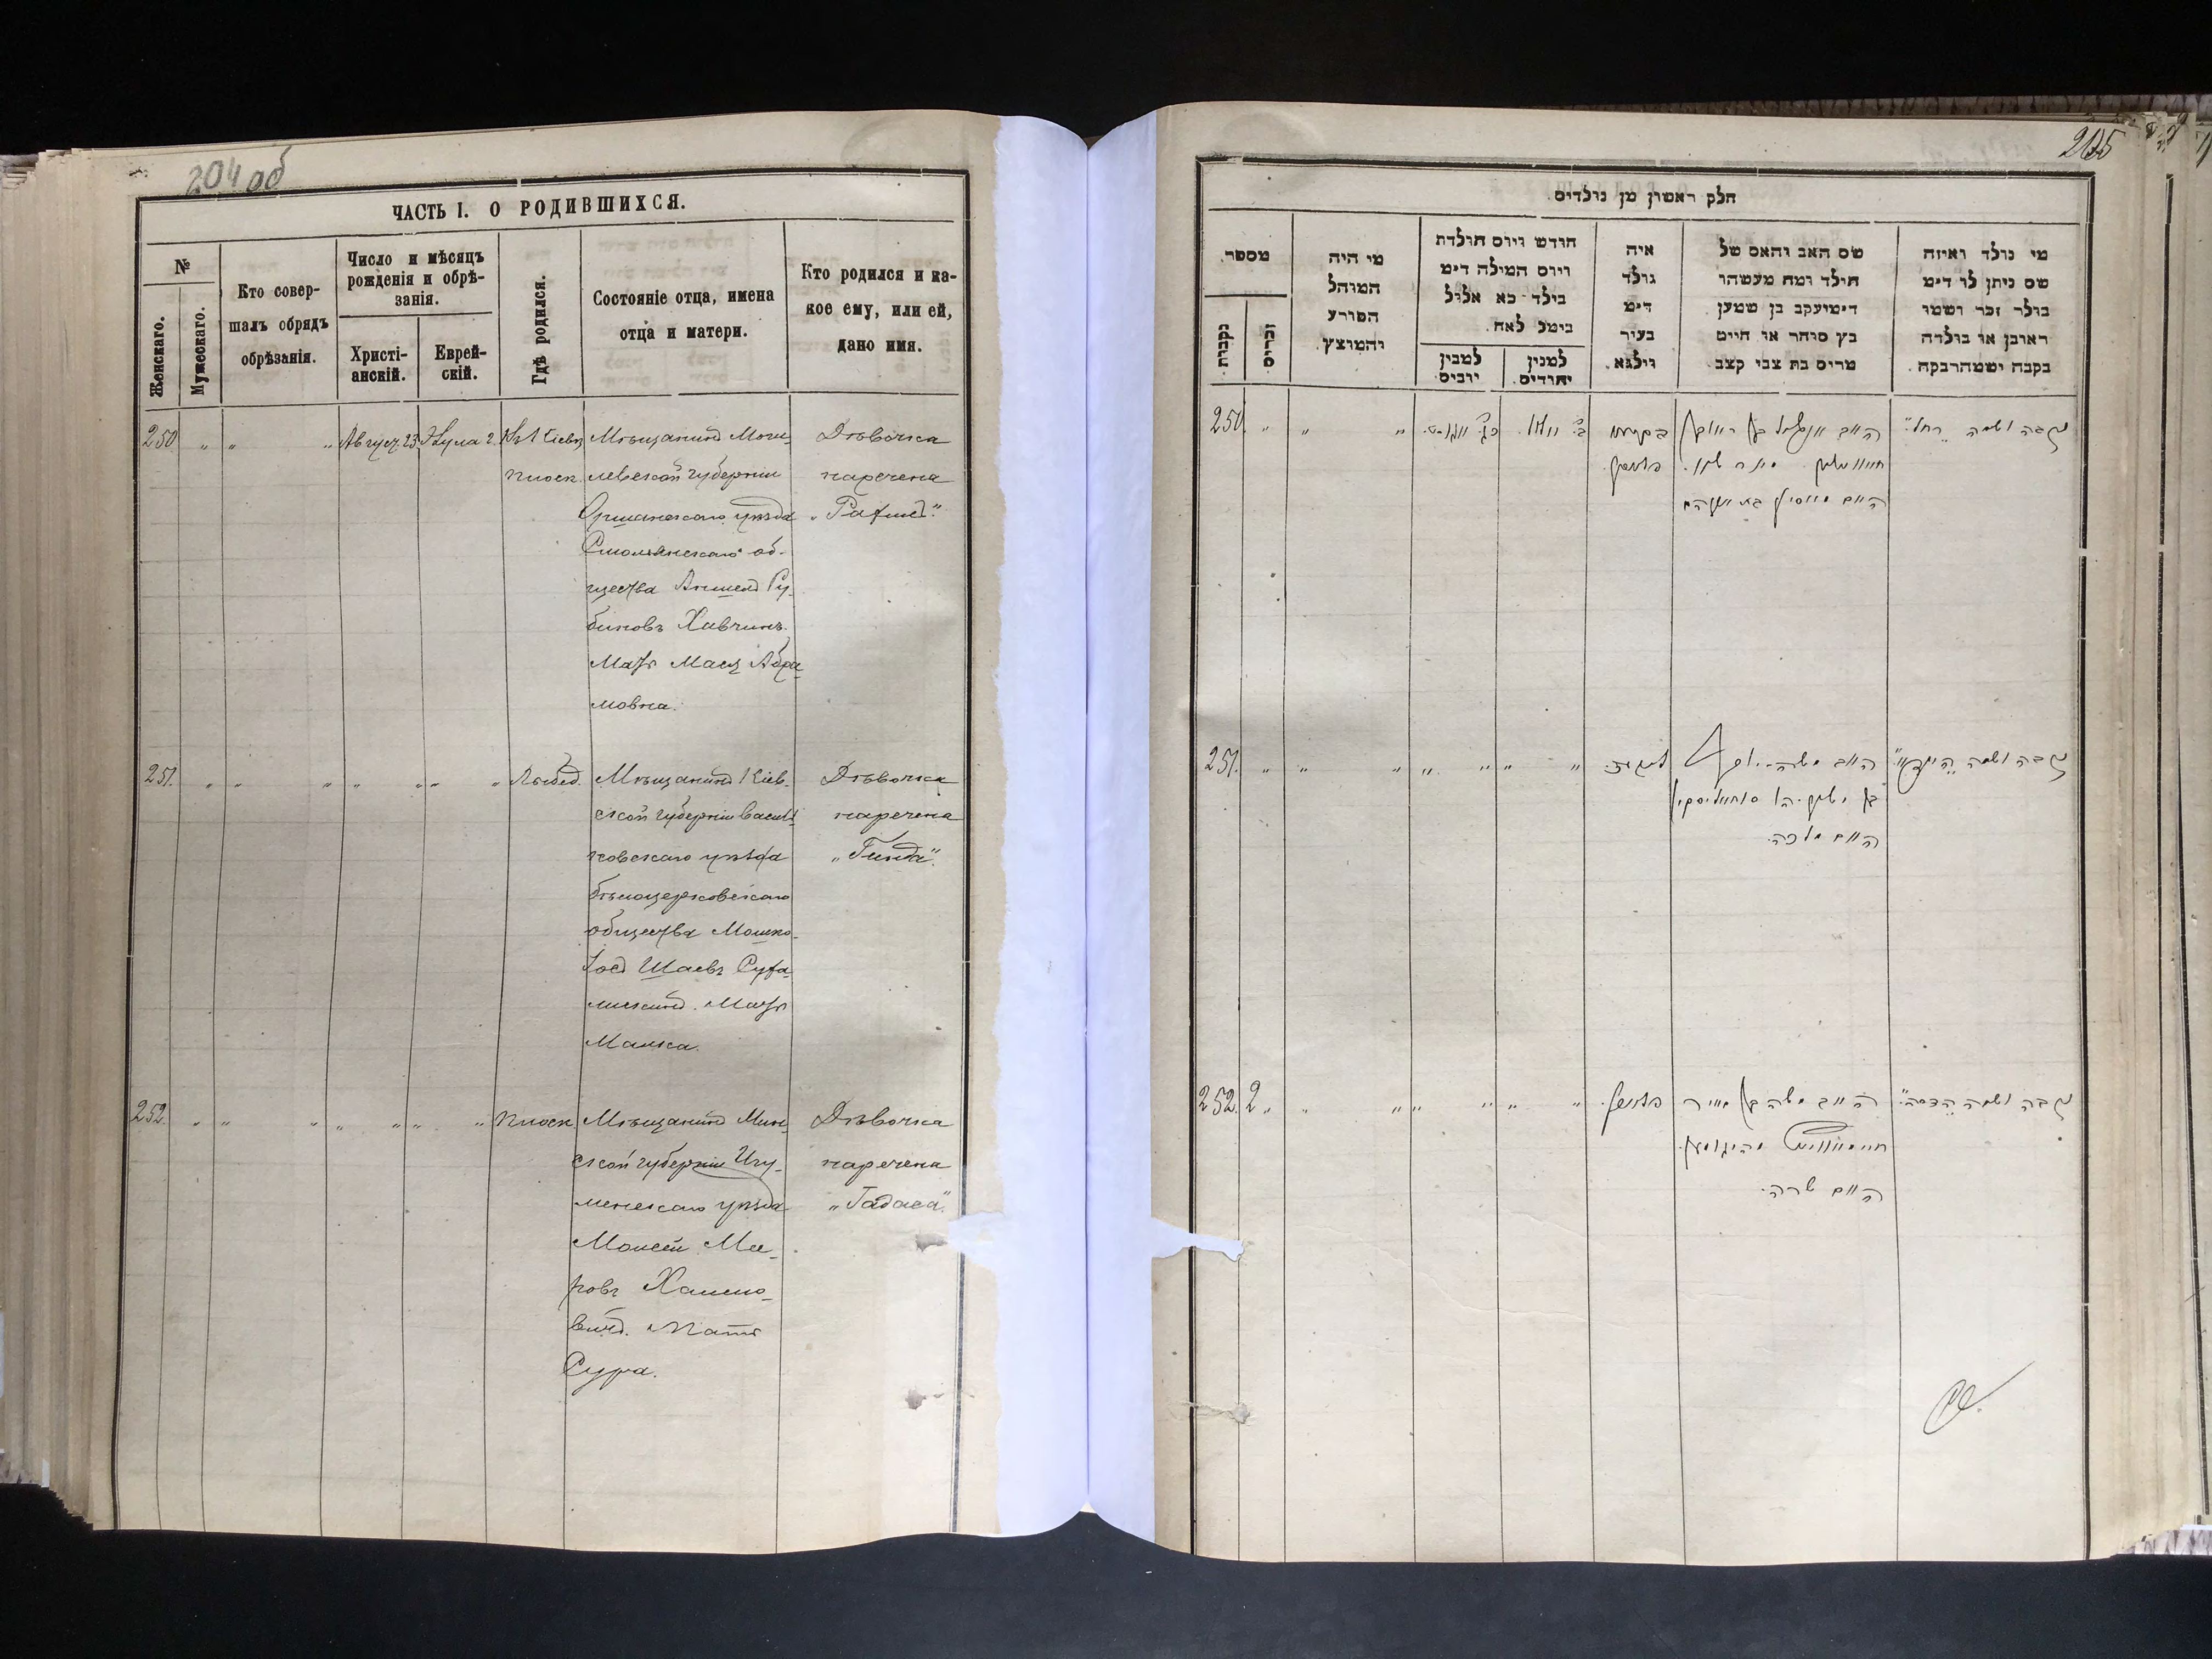 204 об
ЧАСТЬ I. О РОДИВШИХСЯ.
№
Женскаго.
Мужескаго.
Кто совер-
шалъ обрядъ
обрѣзанія.
Число и мѣсяцъ
рожденія и обрѣ-
занія.
Христі-
анскій.
Еврей-
скій.
Гдѣ родился.
Состояніе отца, имена
отца и матери.
Кто родился и ка-
кое ему, или ей,
дано имя.
250 " " " Август 23 Элула 2. Въ Кіевѣ
Плоск.
Мѣщанинъ Моги-
левской губерніи
Оршанскаго уѣзда
Смолянскаго об-
щества Аншель Ру-
биновъ Хавчинъ.
Мать Мася Абра-
мовна.
Дѣвочка
наречена
„Рахиль".
251. " " " " " " " Лыбед.
Мѣщанинъ Кіев-
ской губерніи Василь-
ковскаго уѣзда
бѣлоцерковскаго
общества Мошко-
Іось Шаевъ Сута-
лискинъ. Мать
Малка.
Дѣвочка
наречена
„Гинда".
252. " " " " " " " Плоск.
Мѣщанинъ Мин-
ской губерніи Игу-
менскаго уѣзда
Моисей Мее-
ровъ Хаимо-
вичъ. Мать
Сура.
Дѣвочка
наречена
„Гадаса".
205
חלק ראשון מן נולדים
מספר.
נקבות
זכרים
מי היה
המוהל
הפורע
והמוצץ.
חודש ויום תולדת
ויום המילה דימ
בילד כא אלול
בימל לאח.
למנין
יוביס
למנין
יהודים.
איה
נולד
דימ
בעיר
ווילנא.
שם האב והאם של
הילד ומה מעשהו
דימיעקב בן שמען
בץ סוחר או חייט
מרים בת צבי קצב.
מי נולד ואיזה
שם ניתן לו דימ
בולד זכר ושמו
ראובן או בולדה
בקבה ושמהרבקה.
250. " " "
נקבה ושמה רחל"
251. " " " " " " "
האם מלכה.
252. 2 " " " " " " "
האב משה בן מאיר
האם שרה.
נקבה ושמה הדסה"